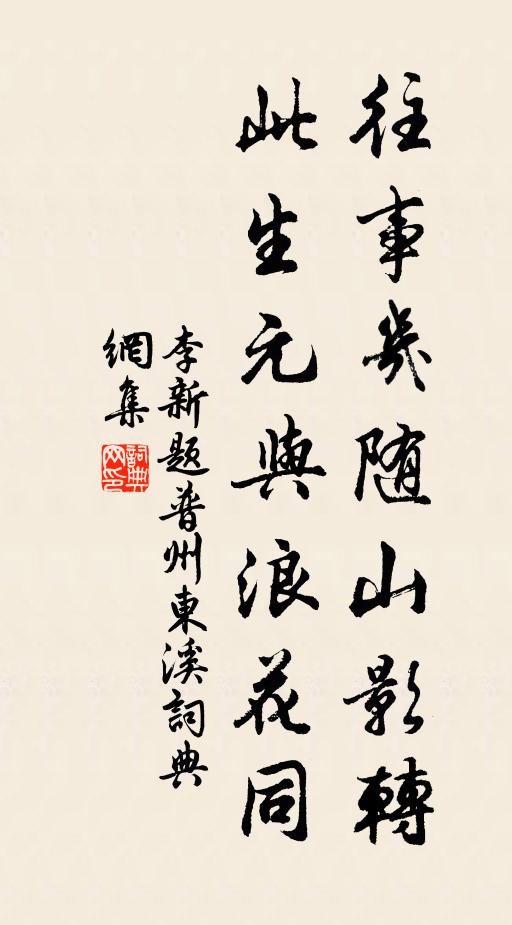 往事幾随山影轉
此生元與浪花同
李新題普州東溪詞典
網集
詞典网印